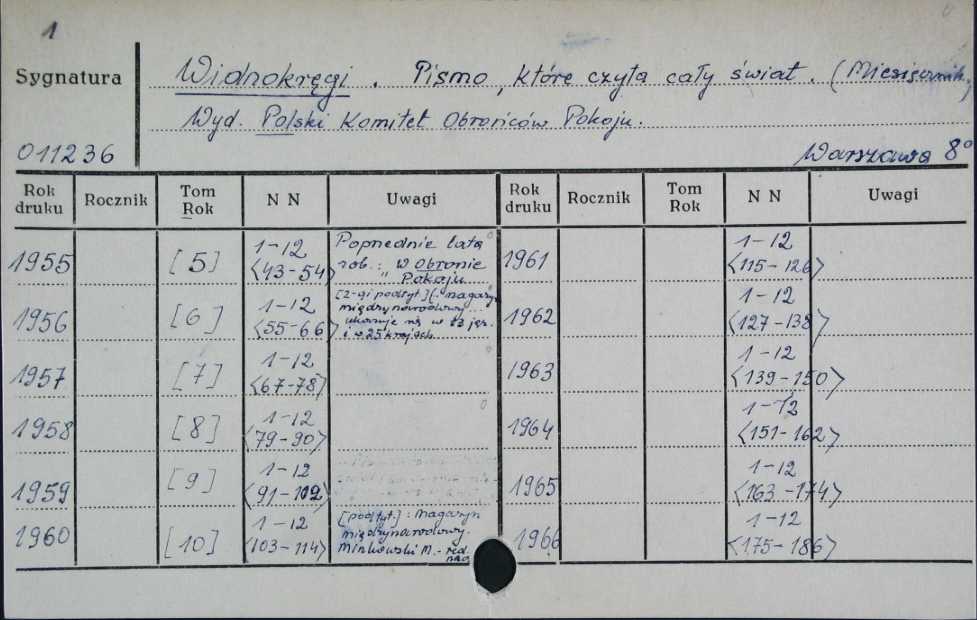 1
Sygnatura
Widnokręgi . Pismo, które czyta cały świat. (Miesięcznik)
Wyd. Polski Komitet Obrońców Pokoju.
011236
Warszawa 8°
Rok druku Rocznik Tom Rok N N Uwagi Rok druku Rocznik Tom Rok N N Uwagi
1955 [5] 1-12 <43-54> Poprzednie lata rob.: "W Obronie Pokoju 1961 1-12 <115-126>
1956 [6] 1-12 <55-66> [2-gi podtyt] (. magazyn międzynarodowy... ukazuje się w 13 jęz. i w 25 krajach 1962 1-12 <127-138>
1957 [7] 1-12 <67-78> 1963 1-12 <139-150>
1958 [8] 1-12 <79-90> 1964 1-12 <151-162>
1959 [9] 1-12 <91-102> 1965 1-12 <163-174>
1960 [10] 1-12 <103-114> [podtyt.]: Magazyn międzynarodowy. Minkowski M. - red. nacz 1966 1-12 <175-186>